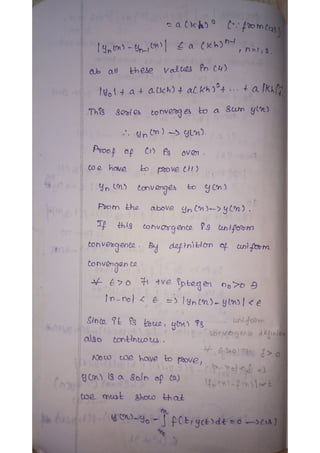 = a (kh)² (∵ from (13))
|yn(x) - yn-1(x)| ≤ a (kh)^n-1, n=1,2
ab all these values in (4)
|y0| + a + a(kh) + a(kh)² + ... + a(kh)
This series converges to a sum y(x)
∴ yn(x) → y(x).
Proof of (i) is over.
we have to prove (ii)
yn(x) converges to y(x)
From the above yn(x) → y(x).
If this convergence is uniform
convergence. By definition of uniform
convergence
∀ ε > 0 ∃ +ve integer n0 > 0 ∋
|n-n0| < ε => |yn(x) - y(x)| < ε
Since it is true, y(x) is
also continuous.
Now we have to prove,
y(x) is a soln of (2)
we must show that
y(x) - y0 - ∫ f(t, y(t)) dt = 0